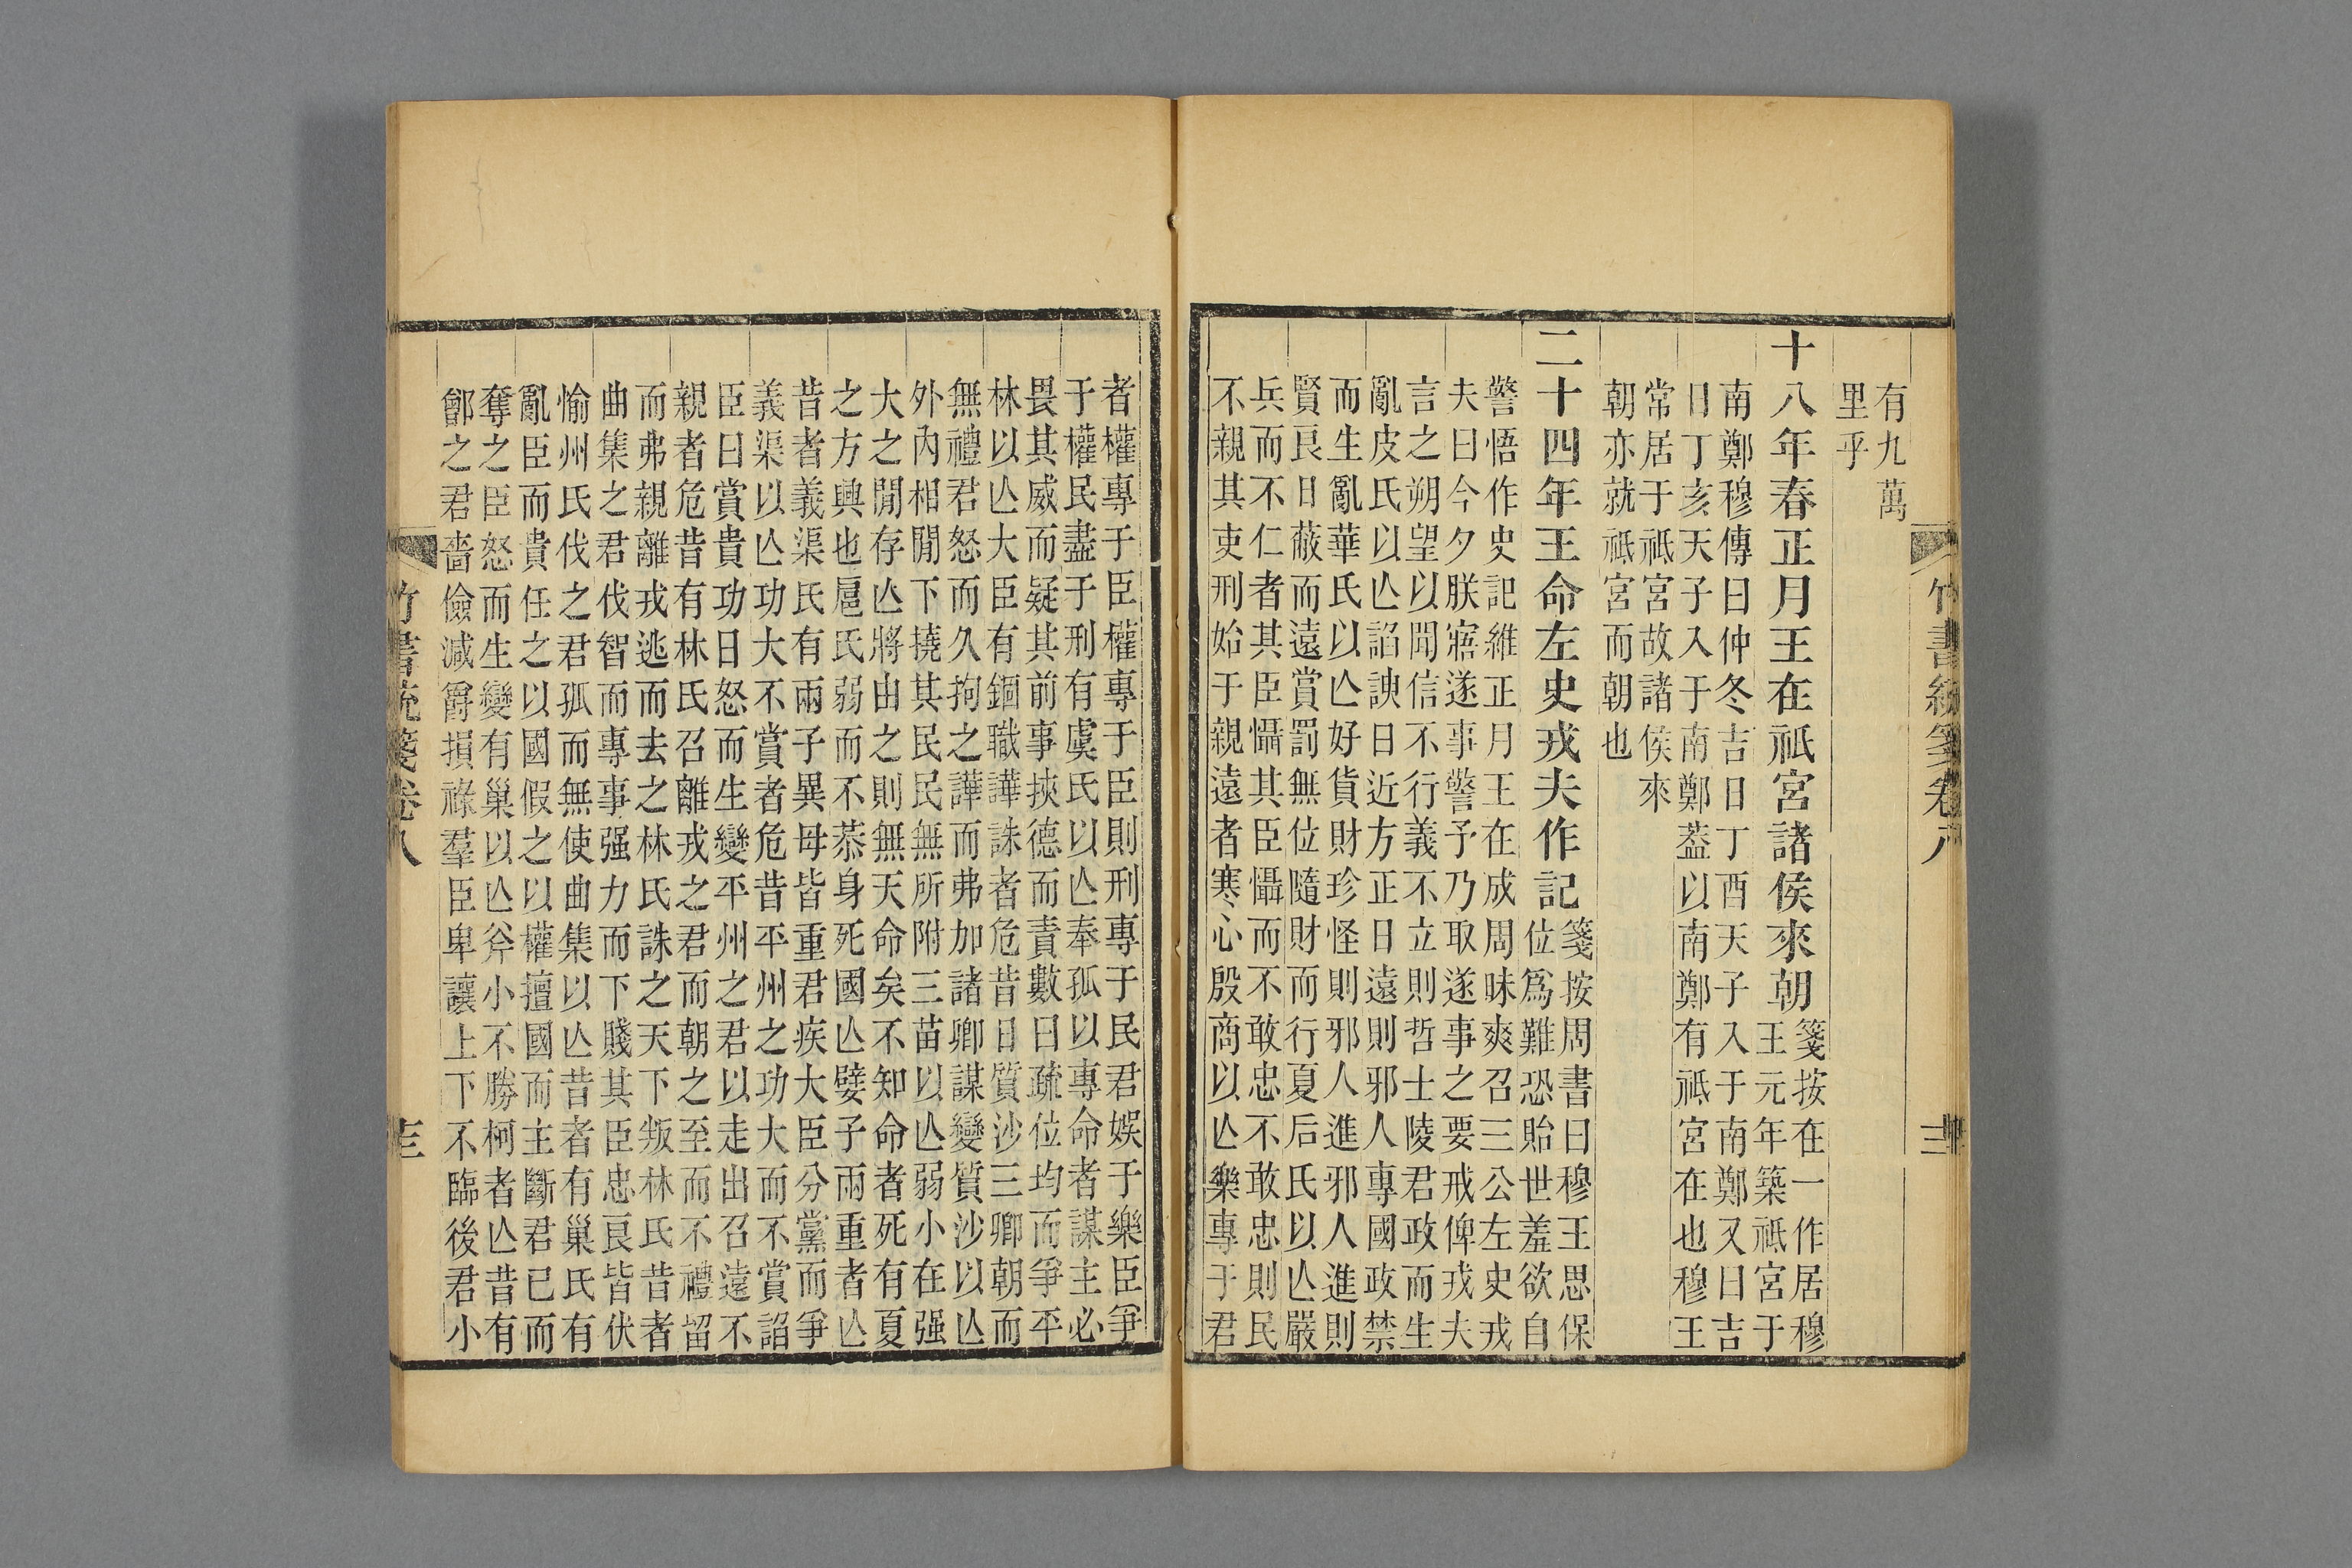 有九萬
里乎
十八年春正月王在祇宮諸侯來朝
箋按在一作居穆
王元年築祗宮于
南鄭穆傳曰仲冬吉日丁酉天子入于南鄭又曰吉
日丁亥天子入于南鄭葢以南鄭有祗宮在也穆王
常居于祗宮故諸侯來
朝亦就祗宮而朝也
二十四年王命左史戎夫作記
箋按周書曰穆王思保
位爲難恐貽世羞欲自
警悟作史記維正月王在成周昧爽召三公左史戎
夫曰今夕朕寤遂事警予乃取遂事之要戒俾戎夫
言之朔望以聞信不行義不立則哲士陵君政而生
亂皮氏以亾諂諛日近方正日遠則邪人專國政禁
而生亂華氏以亾好貨財珍怪則邪人進邪人進則
賢良日蔽而遠賞罰無位隨財而行夏后氏以亾嚴
兵而不仁者其臣懾其臣懾而不敢忠不敢忠則民
不親其吏刑始于親遠者寒心殷商以亾樂專于君
者權專于臣權專于臣則刑專于民君娛于樂臣爭
于權民盡于刑有虞氏以亾奉孤以專命者謀主必
畏其威而疑其前事挾德而責數日疏位均而爭平
林以亾大臣有錮職譁誅者危昔日質沙三卿朝而
無禮君怒而久拘之譁而弗加諸卿謀變質沙以亾
外內相閒下撓其民民無所附三苗以亾弱小在强
大之閒存亾將由之則無天命矣不知命者死有夏
之方興也扈氏弱而不恭身死國亾嬖子兩重者亾
昔者義渠氏有兩子異母皆重君疾大臣分黨而爭
義渠以亾功大不賞者危昔平州之功大而不賞諂
臣曰賞貴功日怒而生變平州之君以走出召遠不
親者危昔有林氏召離戎之君而朝之至而不禮留
而弗親離戎逃而去之林氏誅之天下叛林氏昔者
曲集之君伐智而專事强力而下賤其臣忠良皆伏
愉州氏伐之君孤而無使曲集以亾昔者有巢氏有
亂臣而貴任之以國假之以權擅國而主斷君已而
奪之臣怒而生變有巢以亾斧小不勝柯者亾昔有
鄶之君嗇儉減爵損祿羣臣卑讓上下不臨後君小
竹書統箋卷八